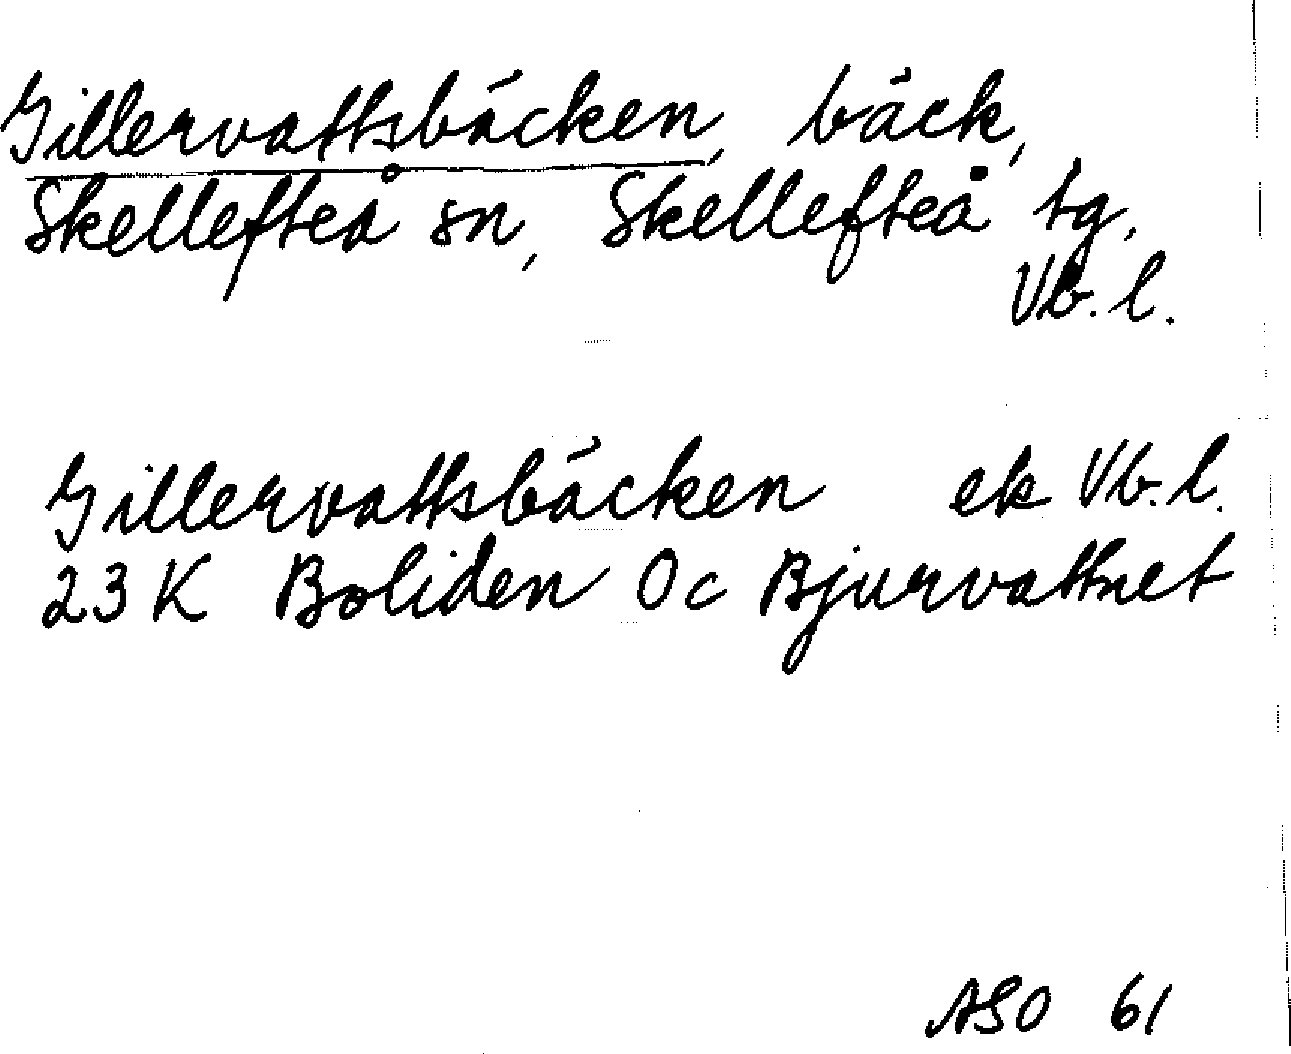 Gillervattsbäcken, bäck,
Skellefteå sn, Skellefteå tg,
Vb. l.
Gillervattsbäcken ek Vb. l.
23 K Boliden Oc Bjurvattnet
ASO 61